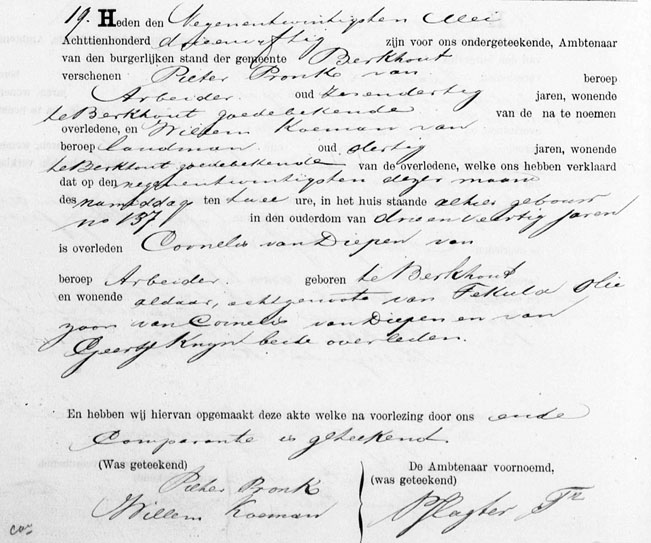 19. Heden den Negenentwintigsten Mei
Achttienhonderd drieenvyftig zijn voor ons ondergeteekende, Ambtenaar
van den burgerlijken stand der gemeente Berkhout
verschenen Pieter Pronk van beroep
Arbeider. oud zesendertig jaren, wonende
te Berkhout goedebekende van de na te noemen
overledene, en Willem Koeman van
beroep landman oud dertig jaren, wonende
te Berkhout goedebekende van de overledene, welke ons hebben verklaard
dat op den negenentwintigsten dezer maand
des namiddag ten twee ure, in het huis staande alhier gebouw
no 137 in den ouderdom van drieenveertig jaren
is overleden Cornelis van Diepen van
beroep Arbeider. geboren te Berkhout
en wonende aldaar, echtgenoote van Olie
zoon van Cornelis van Diepen en van
Geertj Knyn beide overleden.
En hebben wij hiervan opgemaakt deze akte welke na voorlezing door ons ende
Comparante is geteekend
(Was geteekend)
Pieter Pronk
Willem Koeman
De Ambtenaar voornoemd,
(was geteekend)